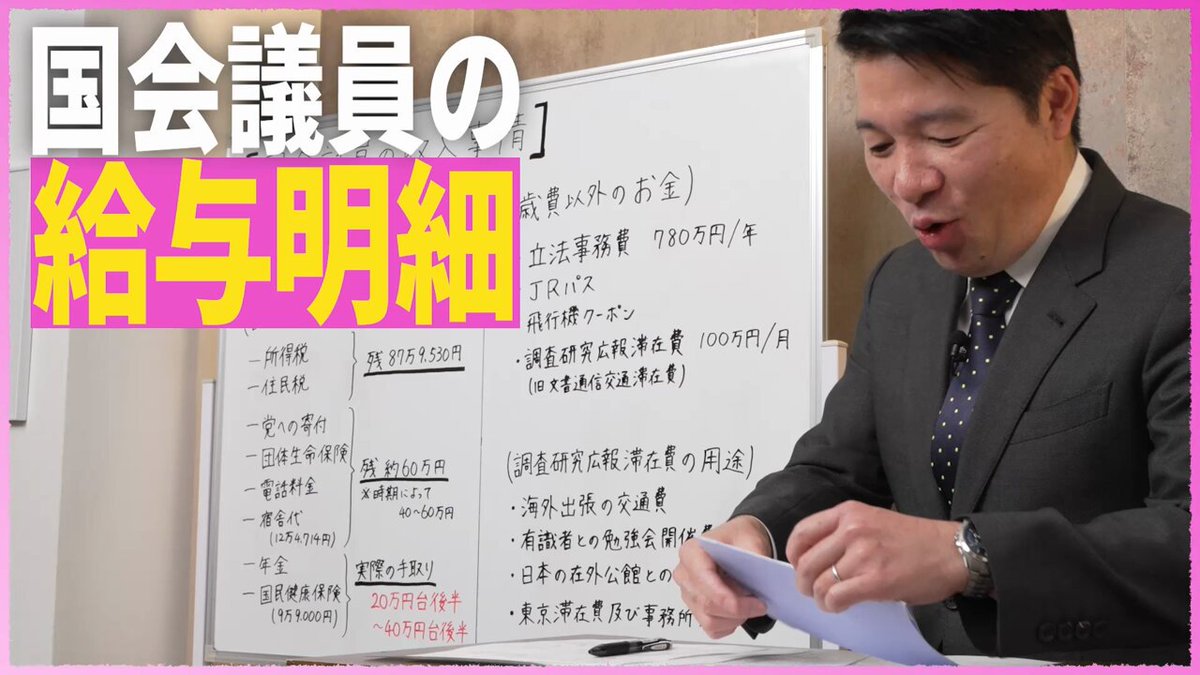 国会議員の
給与明細
情]
歳費以外のお金)
立法事務費 780万円/年
JRパス
飛行機クーポン
・調査研究広報滞在費 100万円/月
(旧文書通信交通滞在費)
(調査研究広報滞在費の用途)
・海外出張の交通費
・有識者との勉強会開催費
・日本の在外公館との
・東京滞在費及び事務所
ー所得税
ー住民税
残 87万9,530円
ー党への寄付
ー団体生命保険
ー電話料金
ー宿舎代
(12万4,714円)
残 約60万円
※時期によって
40〜60万円
ー年金
ー国民健康保険
(9万9,000円)
実際の手取り
20万円台後半
〜40万円台後半